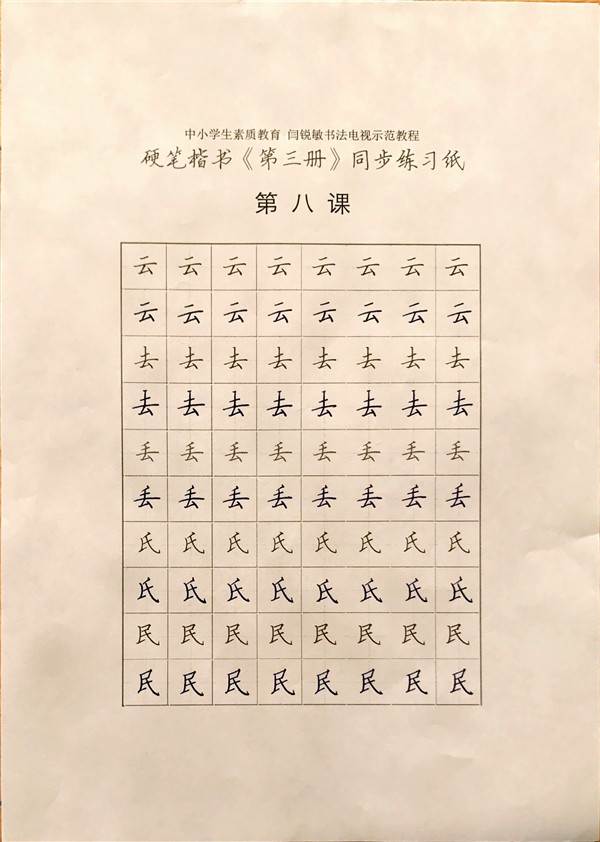 中小学生素质教育 闫锐敏书法电视示范教程
硬笔楷书《第三册》同步练习纸
第八课
云云云云云云云云
云云云云云云云云
去去去去去去去去
去去去去去去去去
丢丢丢丢丢丢丢丢
丢丢丢丢丢丢丢丢
氏氏氏氏氏氏氏氏
氏氏氏氏氏氏氏氏
民民民民民民民民
民民民民民民民民